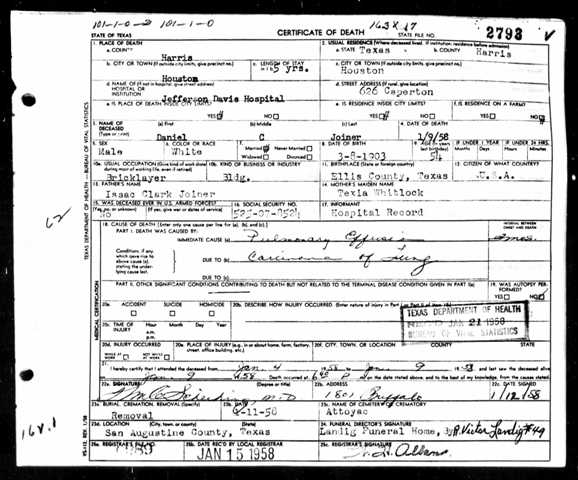 101-1-0-2 101-1-0
163X 17
STATE OF TEXAS
CERTIFICATE OF DEATH
STATE FILE NO.
2793
1. PLACE OF DEATH
a. COUNTY
Harris
2. USUAL RESIDENCE (Where deceased lived. If institution: residence before admission)
a. STATE Texas
b. COUNTY Harris
b. CITY OR TOWN (If outside city limits, give precinct no.)
Houston
c. LENGTH OF STAY
5 yrs.
c. CITY OR TOWN (If outside city limits, give precinct no.)
Houston
d. NAME OF (If not in hospital, give street address)
HOSPITAL OR
INSTITUTION
Jefferson Davis Hospital
d. STREET ADDRESS (If rural, give location)
626 Caperton
e. IS PLACE OF DEATH INSIDE CITY LIMITS?
YES NO
e. IS RESIDENCE INSIDE CITY LIMITS?
YES NO
f. IS RESIDENCE ON A FARM?
YES NO
3. NAME OF
DECEASED
(Type or print)
(a) First
Daniel
(b) Middle
C
(c) Last
Joiner
4. DATE OF DEATH
1/9/58
5. SEX
Male
6. COLOR OR RACE
White
7. Married Never Married
Widowed Divorced
8. DATE OF BIRTH
3-8-1903
54
IF UNDER 1 YEAR
Months Days
IF UNDER 24 HRS.
Hours Min.
10a. USUAL OCCUPATION (Give kind of work done
during most of working life, even if retired)
Bricklayer
10b. KIND OF BUSINESS OR INDUSTRY
Bldg.
11. BIRTHPLACE (State or foreign country)
Ellis County, Texas
12. CITIZEN OF WHAT COUNTRY?
U.S.A.
13. FATHER'S NAME
Isaac Clark Joiner
14. MOTHER'S MAIDEN NAME
Texia Whitlock
15. WAS DECEASED EVER IN U.S. ARMED FORCES?
(Yes, no, or unknown) (If yes, give war or dates of service)
No
16. SOCIAL SECURITY NO.
17. INFORMANT
Hospital Record
18. CAUSE OF DEATH [Enter only one cause per line for (a), (b), and (c).]
INTERVAL BETWEEN
ONSET AND DEATH
PART I. DEATH WAS CAUSED BY:
IMMEDIATE CAUSE (a) Pulmonary Effusion
Conditions, if any
which gave rise to
above cause (a),
stating the under-
lying cause last.
DUE TO (b) Carcinoma of lung
DUE TO (c)
PART II. OTHER SIGNIFICANT CONDITIONS CONTRIBUTING TO DEATH BUT NOT RELATED TO THE TERMINAL DISEASE CONDITION GIVEN IN PART I(a)
19. WAS AUTOPSY PERFORMED?
YES NO
20a. ACCIDENT SUICIDE HOMICIDE
20b. DESCRIBE HOW INJURY OCCURRED. (Enter nature of injury in Part I or Part II of item 18.)
20c. TIME OF INJURY
Hour Month Day Year
a.m.
p.m.
TEXAS DEPARTMENT OF HEALTH
JAN 21 1958
BUREAU OF VITAL STATISTICS
20d. INJURY OCCURRED
WHILE AT WORK NOT WHILE AT WORK
20e. PLACE OF INJURY (e.g. in or about home, farm, factory, street, office building, etc.)
20f. CITY, TOWN, OR LOCATION
COUNTY
STATE
21. I hereby certify that I attended the deceased from Jan 4 1958 to Jan 9 1958 and last saw the deceased alive
on Jan 9 1958. Death occurred at 6 40 P m. on the date stated above, and to the best of my knowledge, from the causes stated.
22a. SIGNATURE
(Degree or title)
M.D.
22b. ADDRESS
1801 Buffalo
22c. DATE SIGNED
1/12/58
23a. BURIAL, CREMATION, REMOVAL (Specify)
Removal
23b. DATE
1-11-58
23c. NAME OF CEMETERY OR CREMATORY
Attoyac
23d. LOCATION (City, town, or county) (State)
San Augustine County, Texas
24. FUNERAL DIRECTOR'S SIGNATURE
Landig Funeral Home, By Victor Landig #49
25a. REGISTRAR'S FILE NO.
25b. DATE REC'D BY LOCAL REGISTRAR
JAN 15 1958
25c. REGISTRAR'S SIGNATURE
TEXAS DEPARTMENT OF HEALTH - BUREAU OF VITAL STATISTICS
MEDICAL CERTIFICATION
62